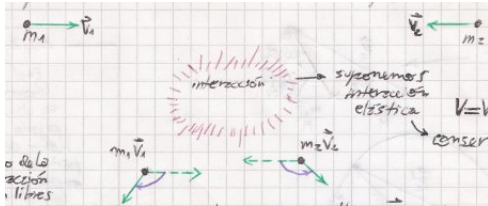 m₁ V⃗₁
V⃗₂ m₂
interacción
suponemos
interacción
elástica
V=V
conser
m₁V⃗₁
m₂V⃗₂
o de la
acción
libres